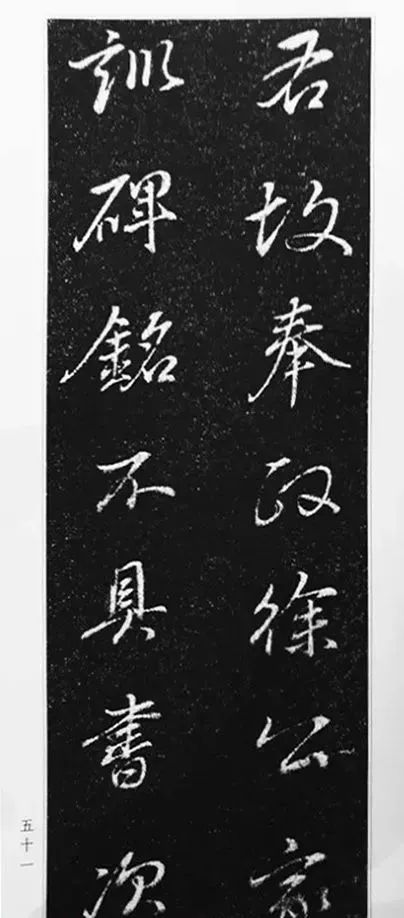 君故奉政徐公家
訓碑銘不具書次
五十一